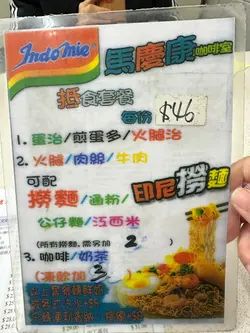 Indomie
馬慶康咖啡室
抵食套餐
每份 $46
1. 蛋治/煎蛋多/火腿治
2. 火腿/肉絲/牛肉
可配
撈麵/通粉/
公仔麵/江西米
印尼撈麵
(所有撈麵,需另加 2 )
3. 咖啡/奶茶
(凍飲加 3 )